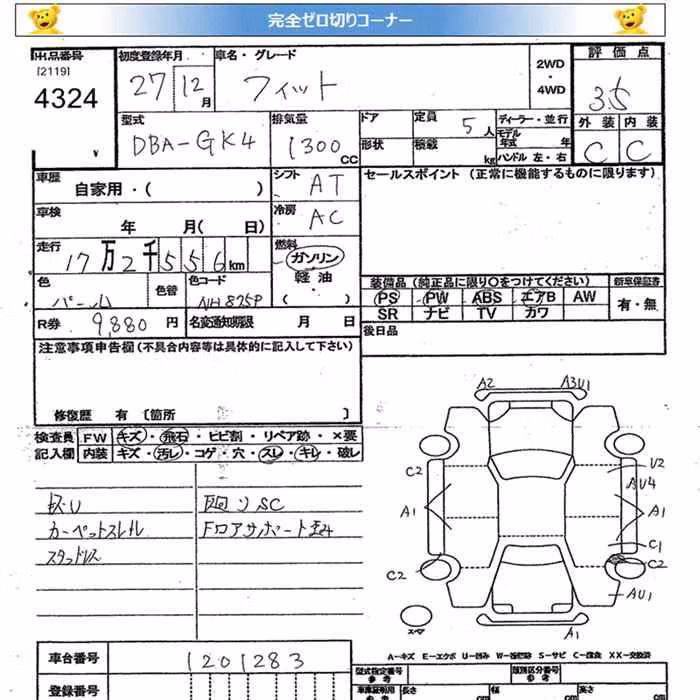 完全ゼロ切りコーナー
出品番号 初度登録年月 車名・グレード 2WD・4WD 評価点
[2119]
4324 27 12月 フィット 3.5
型式 排気量 ドア 定員 ディーラー・並行 外装 内装
DBA-GK4 1300 CC 5人 モデル年式 年 C C
形状 積載 kg ハンドル 左・右
車歴 シフト セールスポイント (正常に機能するものに限ります)
自家用・( ) AT
車検 年 月( 日) 冷房 AC
走行 燃料
17万2千556km ガソリン
軽油
( )
色 色替 色コード 装備品 (純正品に限り○をつけてください) 新車保証書
パール NH825P PS PW ABS エアB AW 有・無
R券 9,880円 名変通知期限 月 日 SR ナビ TV カワ
後日品
注意事項申告欄 (不具合内容等は具体的に記入して下さい)
修復歴 有 [箇所 ]
検査員 FW キズ・飛石・ヒビ割・リペア跡・×要
記入欄 内装 キズ・汚レ・コゲ・穴・スレ・キレ・破レ
灰U 回りSC
カーペットスレ FロアサポートEみ
スタッドレス
A2 A3U1
C2 U2
AU4
A1 A1
C1
C2 C2
AU1
スペア A1
A-キズ E-エクボ U-凹み W-補修跡 S-サビ C-腐食 XX-交換済
車台番号 1201283
型式指定番号 参考 類別区分番号 参考
登録番号 車庫証明用 参考 長さ cm 幅 cm 高さ cm